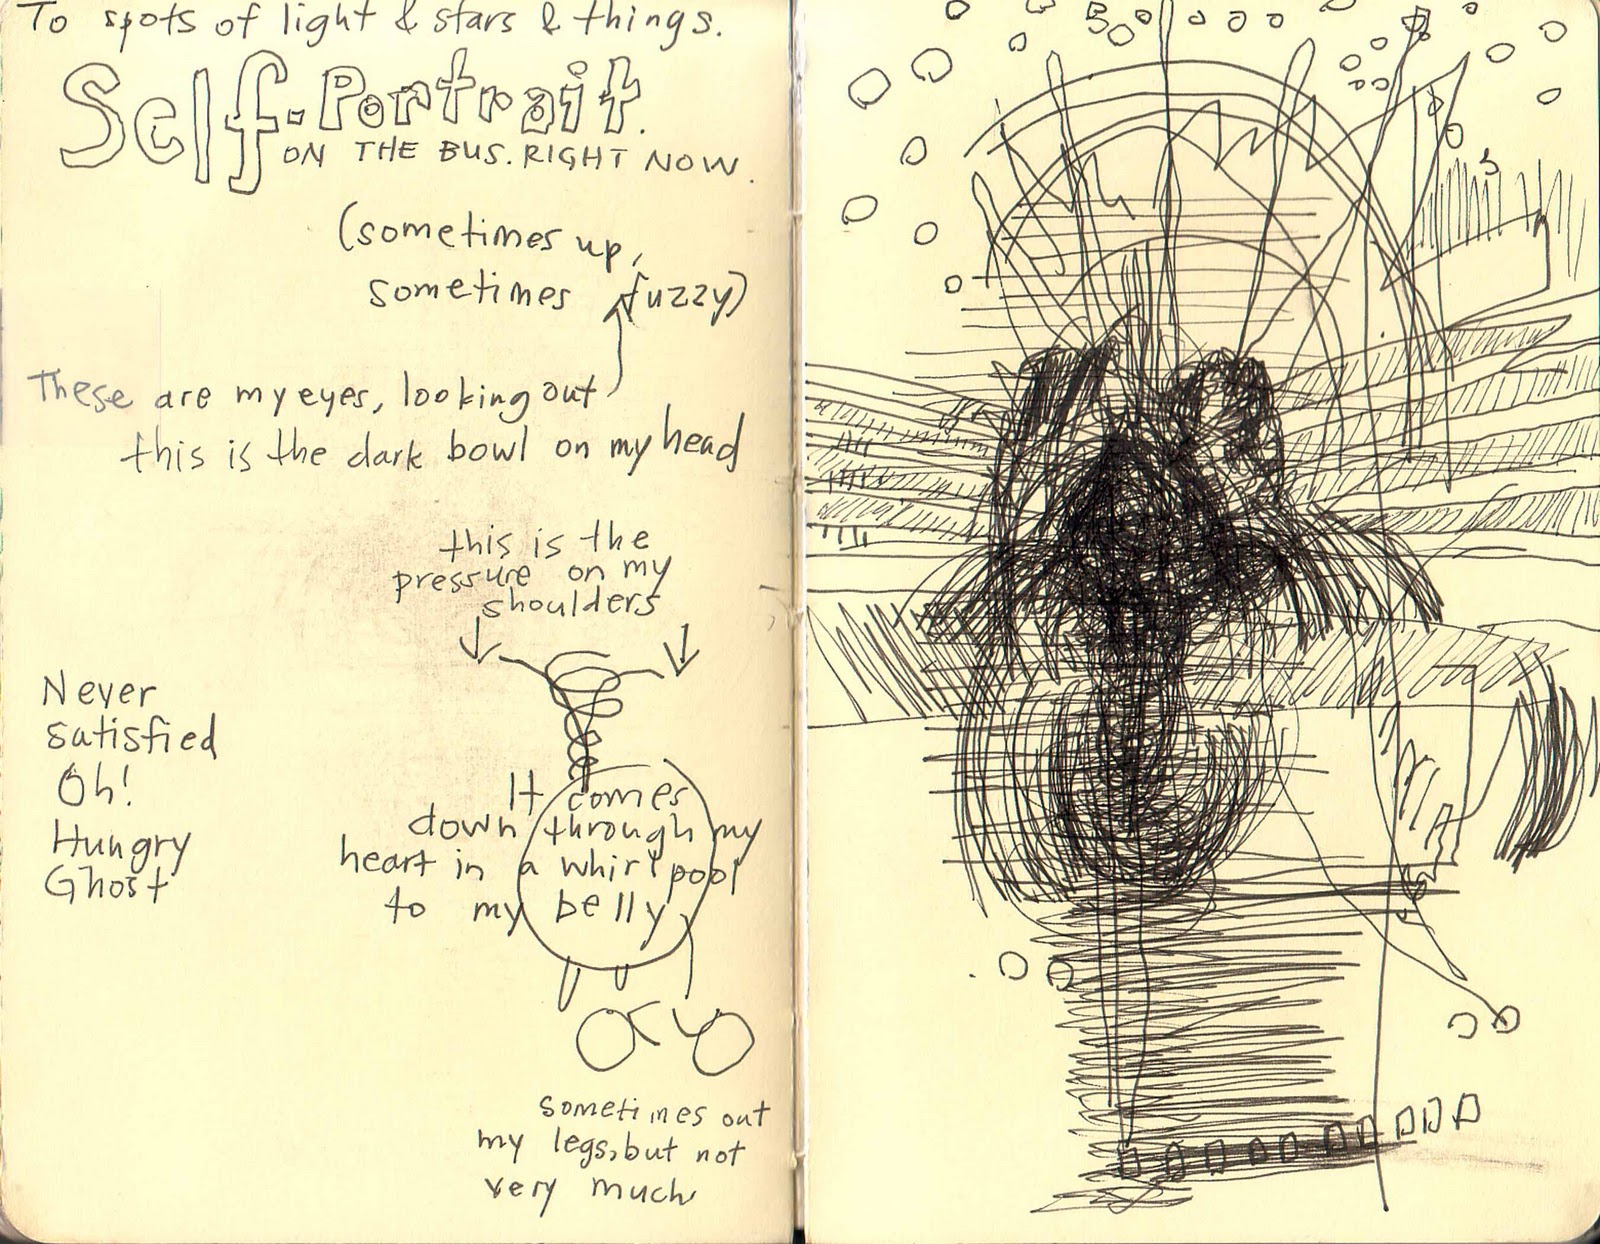 To spots of light & stars & things.
Self-Portrait.
ON THE BUS. RIGHT NOW.
(sometimes up,
sometimes fuzzy)
These are my eyes, looking out
this is the dark bowl on my head
this is the
pressure on my
shoulders
Never
satisfied
Oh!
Hungry
Ghost
It comes
down through my
heart in a whirlpool
to my belly
sometimes out
my legs, but not
very much